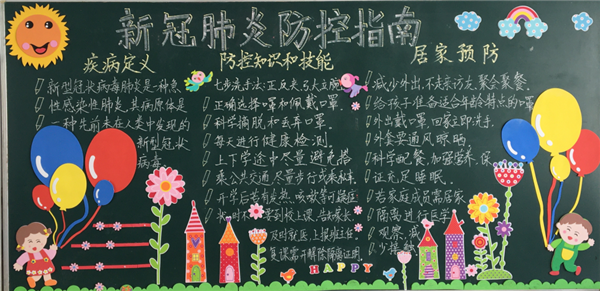 新冠肺炎防控指南
疾病定义
新型冠状病毒肺炎是一种急
性感染性肺炎,其病原体是
一种先前未在人类中发现的
新型冠状
病毒
防控知识和技能
七步洗手法:正反夹弓大立腕
正确选择口罩和佩戴口罩.
科学摘脱和丢弃口罩.
每天进行健康检测.
上下学途中尽量避免搭
乘公共交通,尽量步行或乘私家车.
开学后若有发热、咳嗽等可疑症
状时不带病到校上课,告知家长,
及时就医,上报班主任.
复课需开解除隔离证明.
居家预防
减少外出,不走亲访友、聚会聚餐.
给孩子准备适合年龄特点的口罩
外出戴口罩,回家立即洗手.
外套要通风晾晒.
科学配餐,加强营养,保
证充足睡眠.
若家庭成员需居家
隔离进行医学
观察,减
少接触
HAPPY